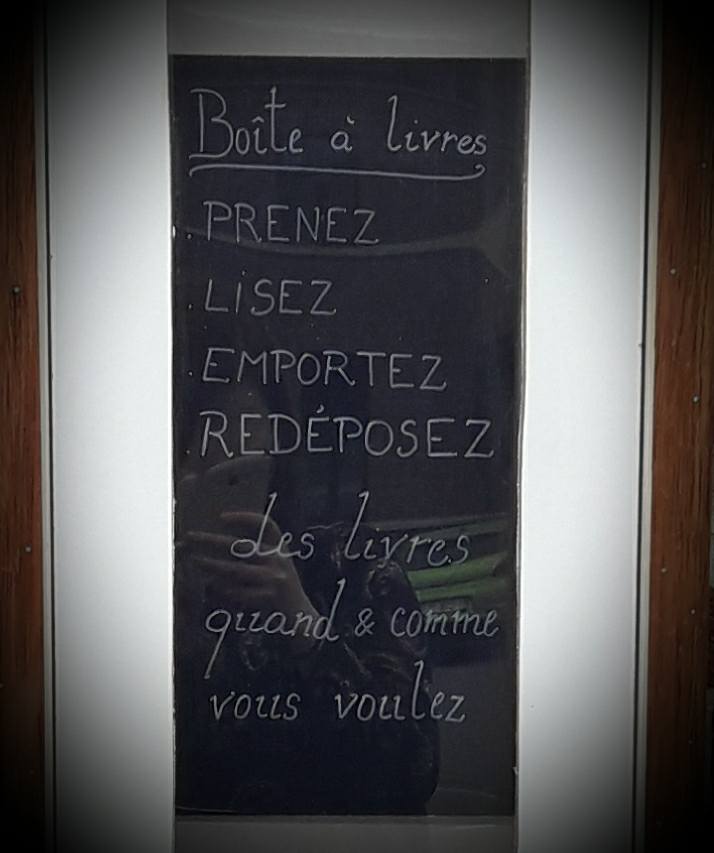 Boîte à livres
. PRENEZ
. LISEZ
. EMPORTEZ
. REDÉPOSEZ
des livres
quand & comme
vous voulez